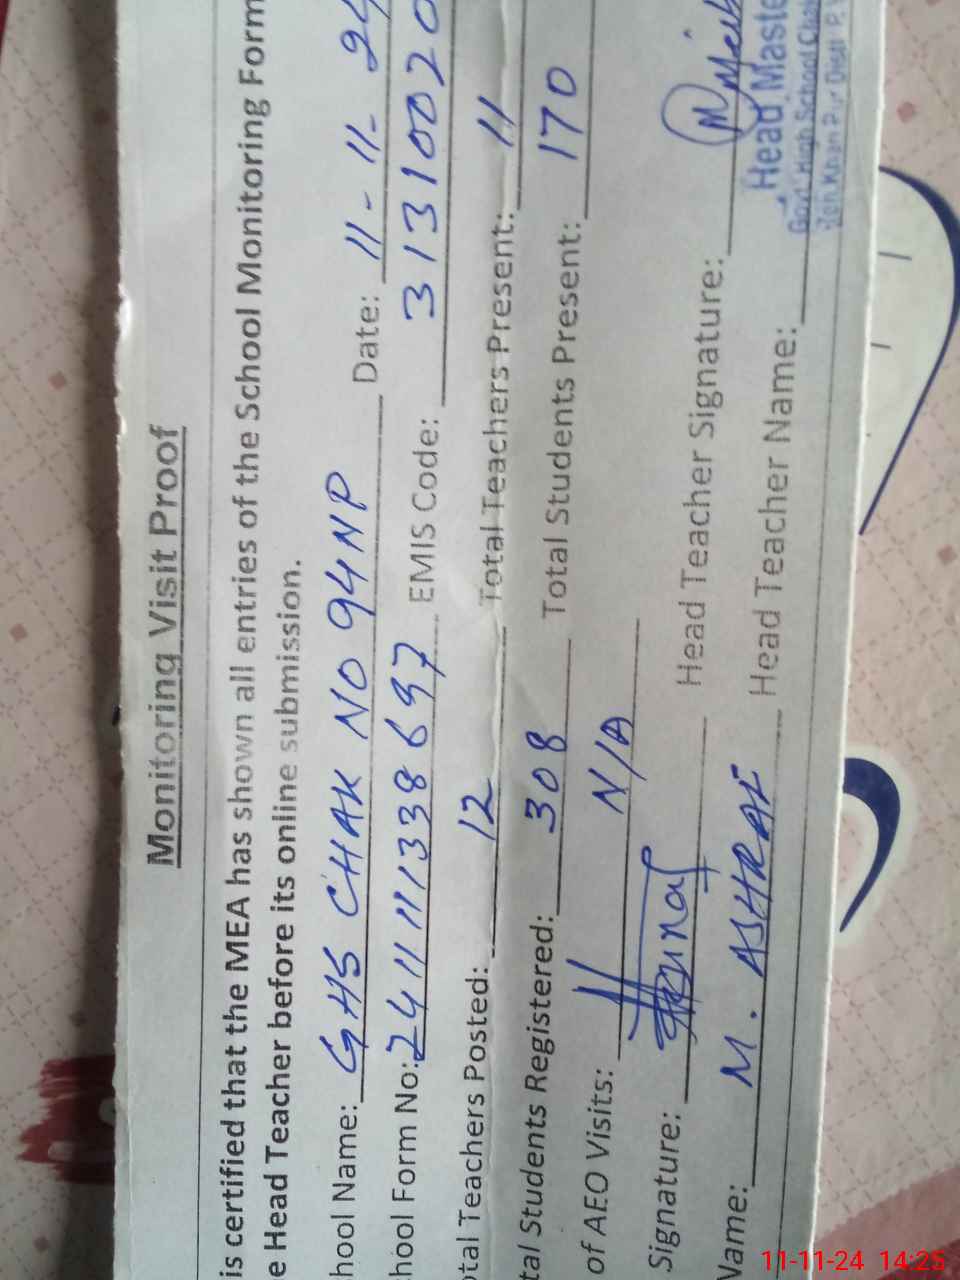 Monitoring Visit Proof
is certified that the MEA has shown all entries of the School Monitoring Form
e Head Teacher before its online submission.
hool Name: GHS CHAK NO 94NP Date: 11-11-24
hool Form No: 24111111338697 EMIS Code: 31310020
otal Teachers Posted: 12 Total Teachers Present: 11
tal Students Registered: 308 Total Students Present: 170
of AEO Visits: N/A
Signature: Head Teacher Signature:
Name: M. ASHRAF Head Teacher Name:
Head Maste
Govt. High School Chak
Teh Khan Pur Distt R.Y
11-11-24 14:25